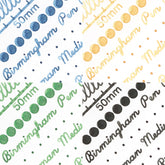 50mm
Birmingham Pen
Medi
50mm
Birmingham Pen
Medi
50mm
Birmingham Pen
Medi
50mm
Birmingham Pen
Medi